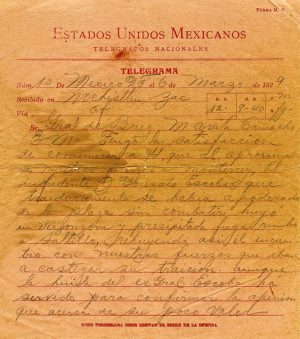 FORMA M. V.
ESTADOS UNIDOS MEXICANOS
TELEGRAFOS NACIONALES
TELEGRAMA
Núm. 13 De Mexico DF el 6 de Marzo de 1929
Recibido en Nochistlan Zac
Vía Of 12 9.40
Sr. Gral de Brig M Avila Camacho
EMO Tengo la satisfaccion
de comunicar a Ud que al aproximarse
a Monterrey, el
infidente Gral Escobar que
traidoramente se habia apoderado
de la plaza sin combatir huyo
en vergonzosa y precipitada fuga rumbo
a Saltillo, rehuyendo asi el encuen
tro con nuestras fuerzas que iban
a castigar su traicion. aunque
la huida del ex Gral Escobar ha
servido para confirmar la opinion
que acerca de su poco valor
TODO TELEGRAMA DEBE LLEVAR EL SELLO DE LA OFICINA